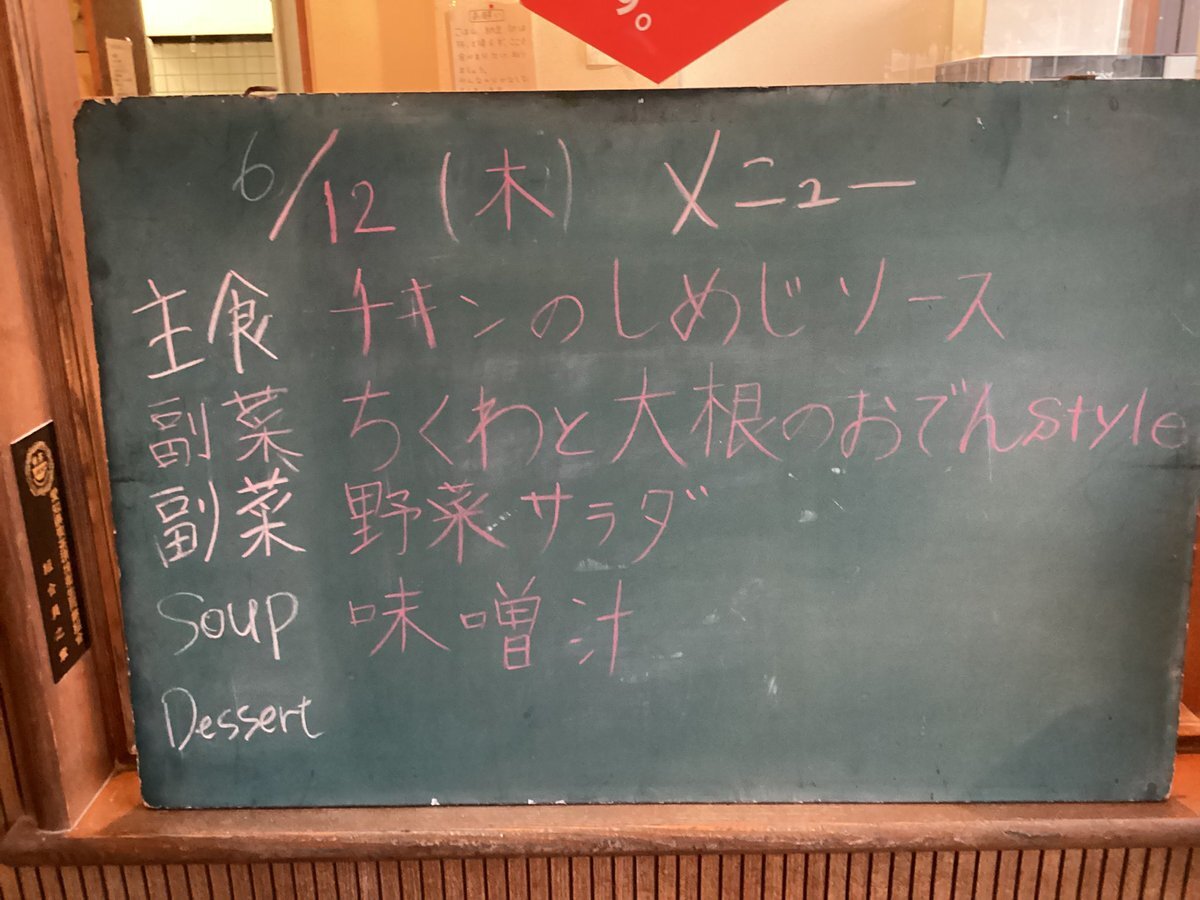 す。
6/12 (木) メニュー
主食 チキンのしめじソース
副菜 ちくわと大根のおでんstyle
副菜 野菜サラダ
Soup 味噌汁
Dessert